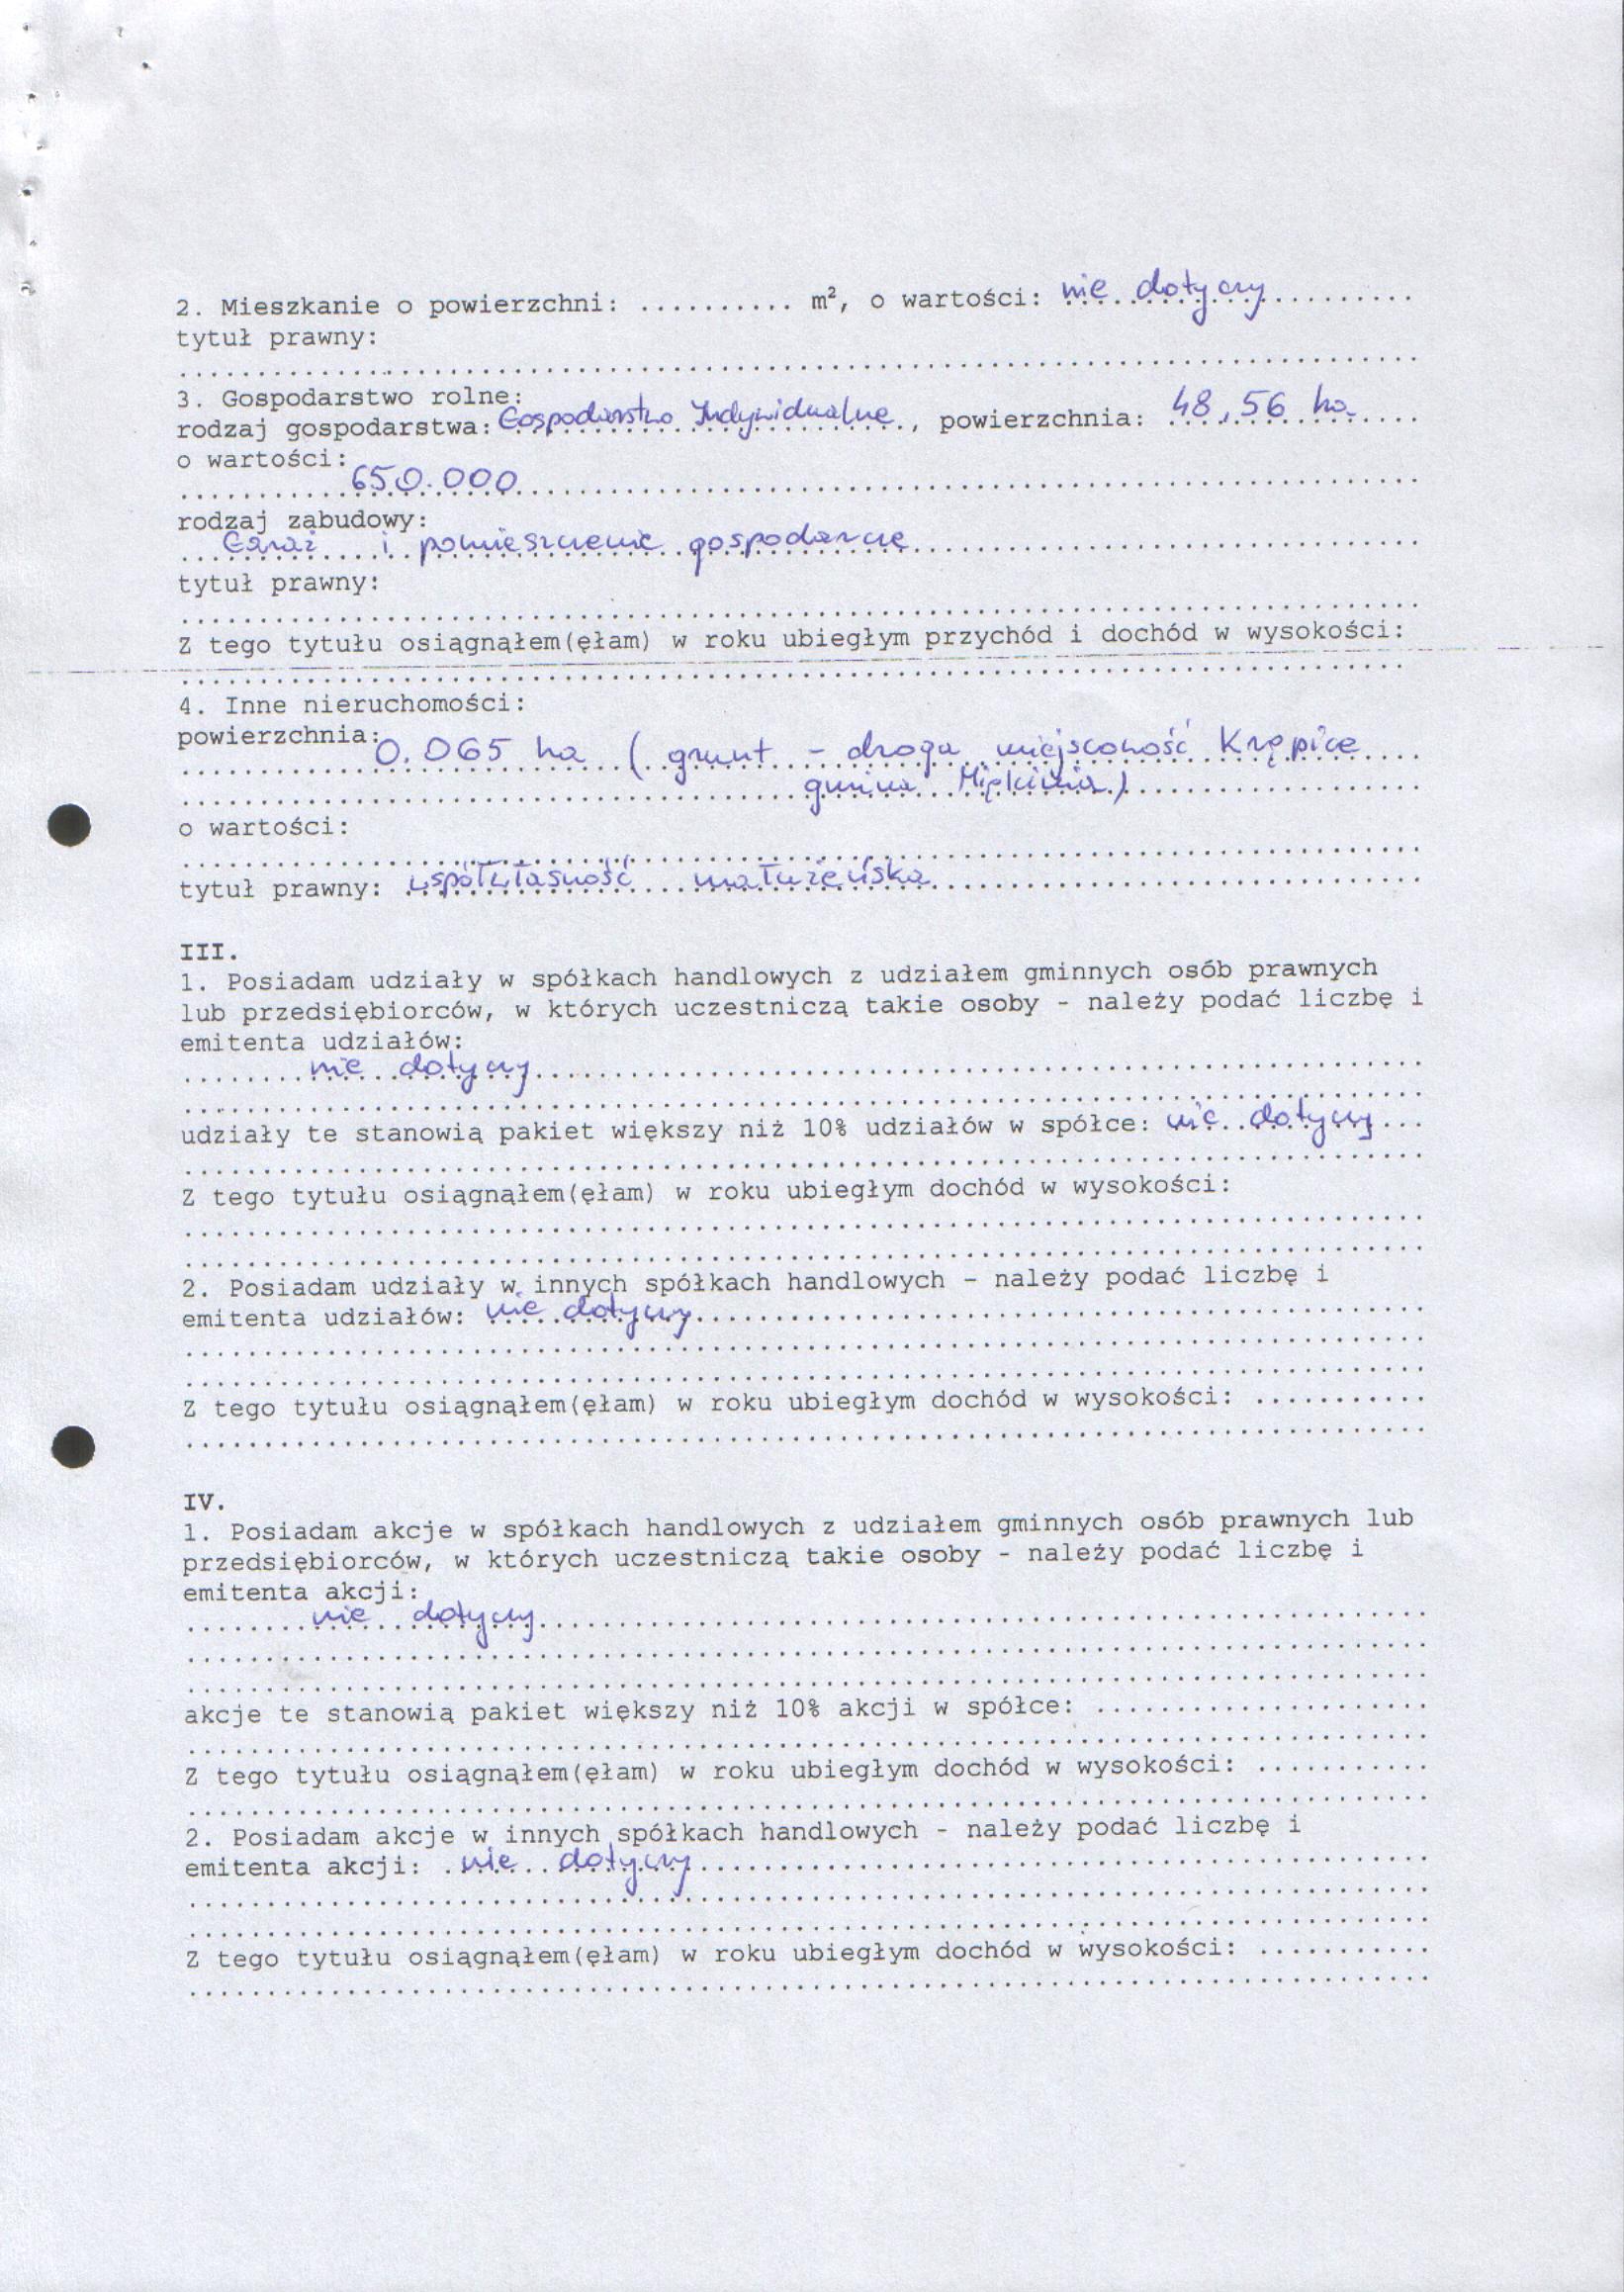 2. Mieszkanie o powierzchni: .......... m², o wartości: nie dotyczy
tytuł prawny:
3. Gospodarstwo rolne:
rodzaj gospodarstwa: Gospodarstwo Indywidualne, powierzchnia: 48,56 ha
o wartości:
650.000
rodzaj zabudowy:
Garaż i pomieszczenie gospodarcze
tytuł prawny:
Z tego tytułu osiągnąłem(ęłam) w roku ubiegłym przychód i dochód w wysokości:
4. Inne nieruchomości:
powierzchnia:
0.065 ha ( grunt - droga miejscowość Krępice
gmina Miękinia)
o wartości:
tytuł prawny: współwłasność małżeńska
III.
1. Posiadam udziały w spółkach handlowych z udziałem gminnych osób prawnych
lub przedsiębiorców, w których uczestniczą takie osoby - należy podać liczbę i
emitenta udziałów:
nie dotyczy
udziały te stanowią pakiet większy niż 10% udziałów w spółce: nie dotyczy
Z tego tytułu osiągnąłem(ęłam) w roku ubiegłym dochód w wysokości:
2. Posiadam udziały w innych spółkach handlowych - należy podać liczbę i
emitenta udziałów: nie dotyczy
Z tego tytułu osiągnąłem(ęłam) w roku ubiegłym dochód w wysokości: ...........
IV.
1. Posiadam akcje w spółkach handlowych z udziałem gminnych osób prawnych lub
przedsiębiorców, w których uczestniczą takie osoby - należy podać liczbę i
emitenta akcji:
nie dotyczy
akcje te stanowią pakiet większy niż 10% akcji w spółce: .....................
Z tego tytułu osiągnąłem(ęłam) w roku ubiegłym dochód w wysokości: ...........
2. Posiadam akcje w innych spółkach handlowych - należy podać liczbę i
emitenta akcji: nie dotyczy
Z tego tytułu osiągnąłem(ęłam) w roku ubiegłym dochód w wysokości: ...........